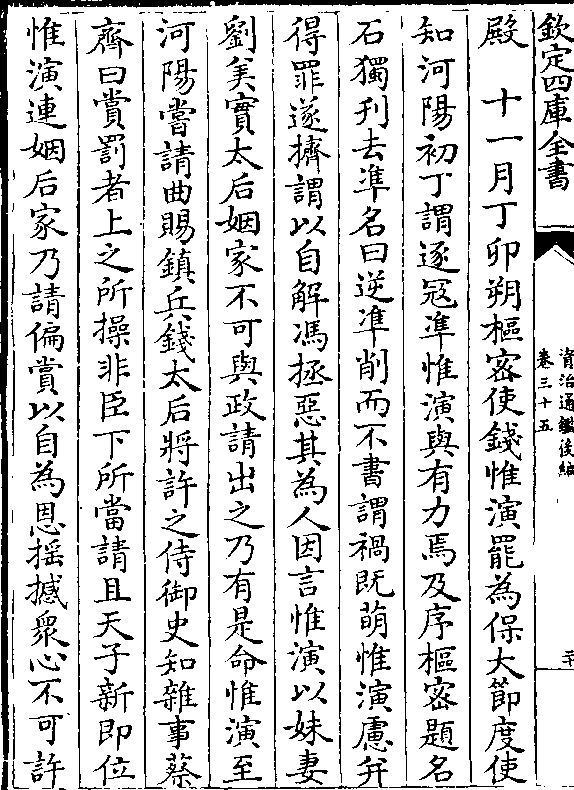 欽定四庫全書
資治通鑑後編
卷三十五
二十
殿　十一月丁卯朔樞密使錢惟演罷為保大節度使
知河陽初丁謂逐冦準惟演與有力焉及序樞密題名
石獨刋去準名曰逆準削而不書謂禍既萌惟演慮并
得罪遂擠謂以自解馮拯惡其為人因言惟演以妹妻
劉美實太后姻家不可與政請出之乃有是命惟演至
河陽嘗請曲賜鎮兵錢太后將許之侍御史知雜事蔡
齊曰賞罰者上之所操非臣下所當請且天子新即位
惟演連姻后家乃請偏賞以自為恩揺撼衆心不可許